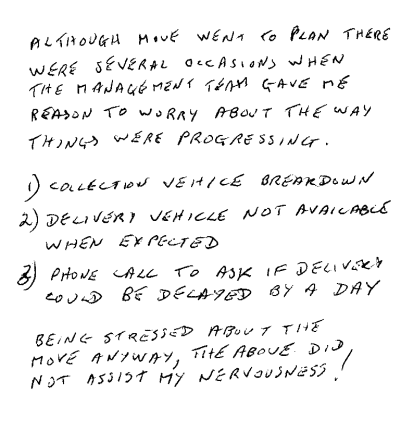 ALTHOUGH MOVE WENT TO PLAN THERE
WERE SEVERAL OCCASIONS WHEN
THE MANAGEMENT TEAM GAVE ME
REASON TO WORRY ABOUT THE WAY
THINGS WERE PROGRESSING.
1) COLLECTION VEHICLE BREAKDOWN
2) DELIVERY VEHICLE NOT AVAILABLE
WHEN EXPECTED
3) PHONE CALL TO ASK IF DELIVERY
COULD BE DELAYED BY A DAY
BEING STRESSED ABOUT THE
MOVE ANYWAY, THE ABOVE DID
NOT ASSIST MY NERVOUSNESS!